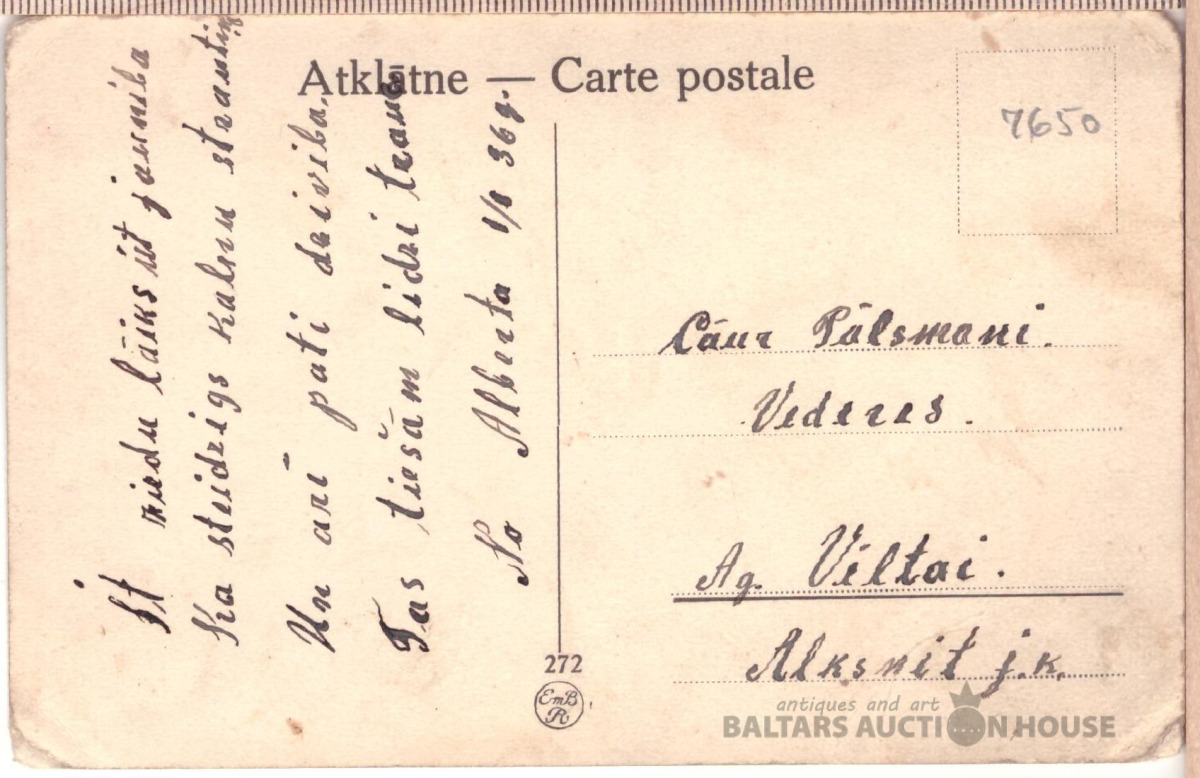 Atklātne — Carte postale
7650
It ziedu lāiks iit jauniba
Ka steidzigs kalnu strautiņ
Un arī pati dzivība,
Tas tiešām lidzi trauc
No Alberta 1/1 36g.
Cāur Pālsmani.
Vederes.
Ag. Viltai.
Alksnit j.k.
272
EmB
R
antiques and art
BALTARS AUCTION HOUSE